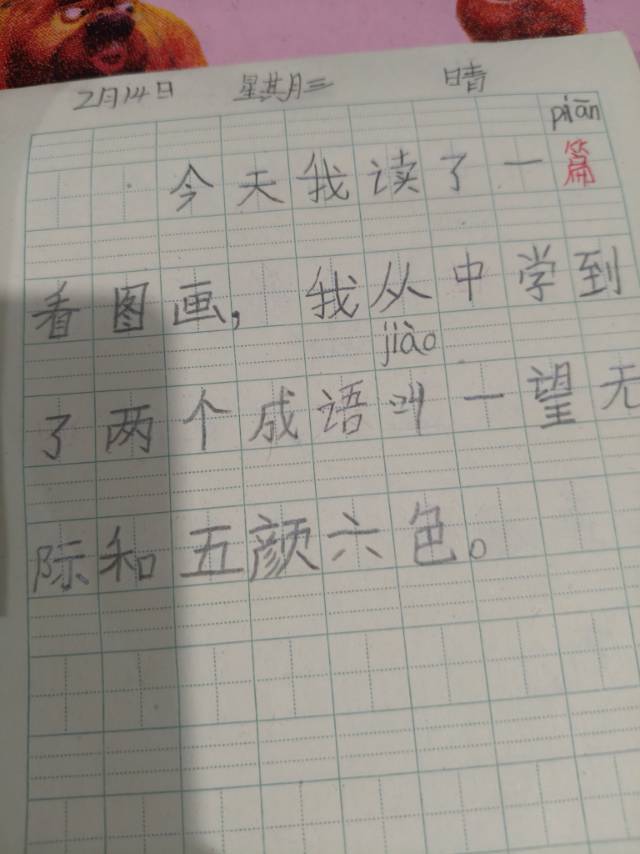 2月14日 星期三 晴
piān
今天我读了一篇
看图画，我从中学到
jiào
了两个成语叫一望无
际和五颜六色。